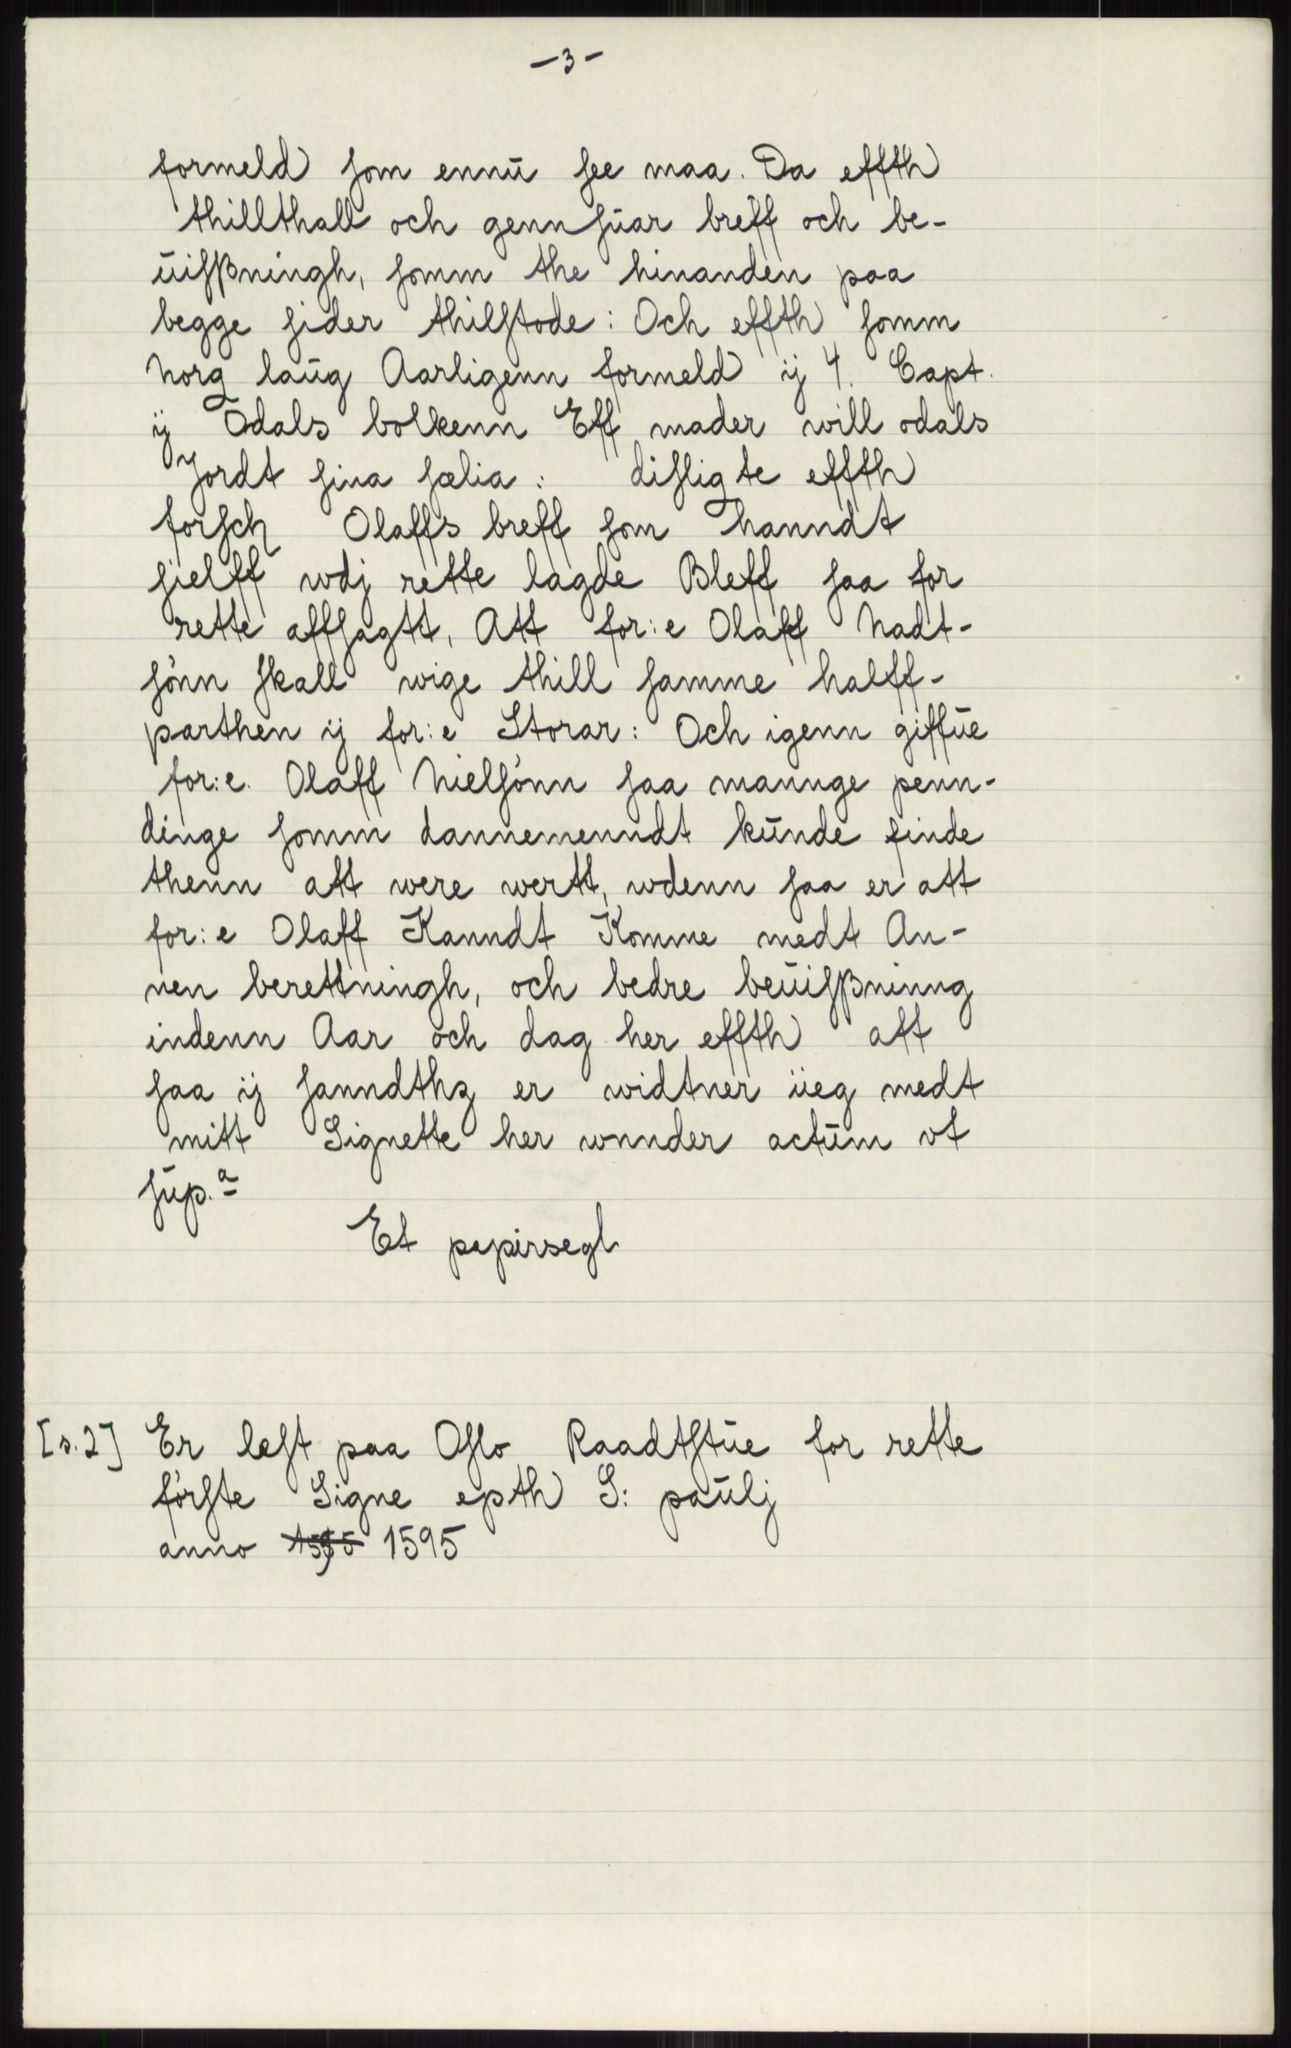 -3-
formeld som ennŭ see maa. Da effth
thillthall och gennsŭar breff och be-
ŭisßningh, somm the hinanden paa
begge sider thilstode: Och effth somm
Norg laŭg Aarligenn formeld ij 4. Capt.
ij Odals bolkenn Eff mader will odals
Jordt sina sælia: disligte effth
forsch Olaffs breff som hanndt
sielff wdj rette lagde Bleff saa for
rette affsagtt, Att for:e Olaff Nadt-
sónn skall wige thill samme halff-
parthen ij for:e Storar: Och igenn giffŭe
for:e. Olaff Nielsónn saa mannge penn-
dinge somm dannemenndt kŭnde finde
thenn att were wertt, wdenn saa er att
for:e Olaff Kanndt Komme medt An-
nen berettningh, och bedre beŭisßninng
indenn Aar och dag her effth att
saa ij sanndthz er widtner ŭeg medt
mitt Signette her wnnder actŭm vt
sŭp.a
Et papirsegl
[s.2] Er lest paa Oslo Raadtstŭe for rette
fórste Signe epth S: paŭlj
anno 1595 1595